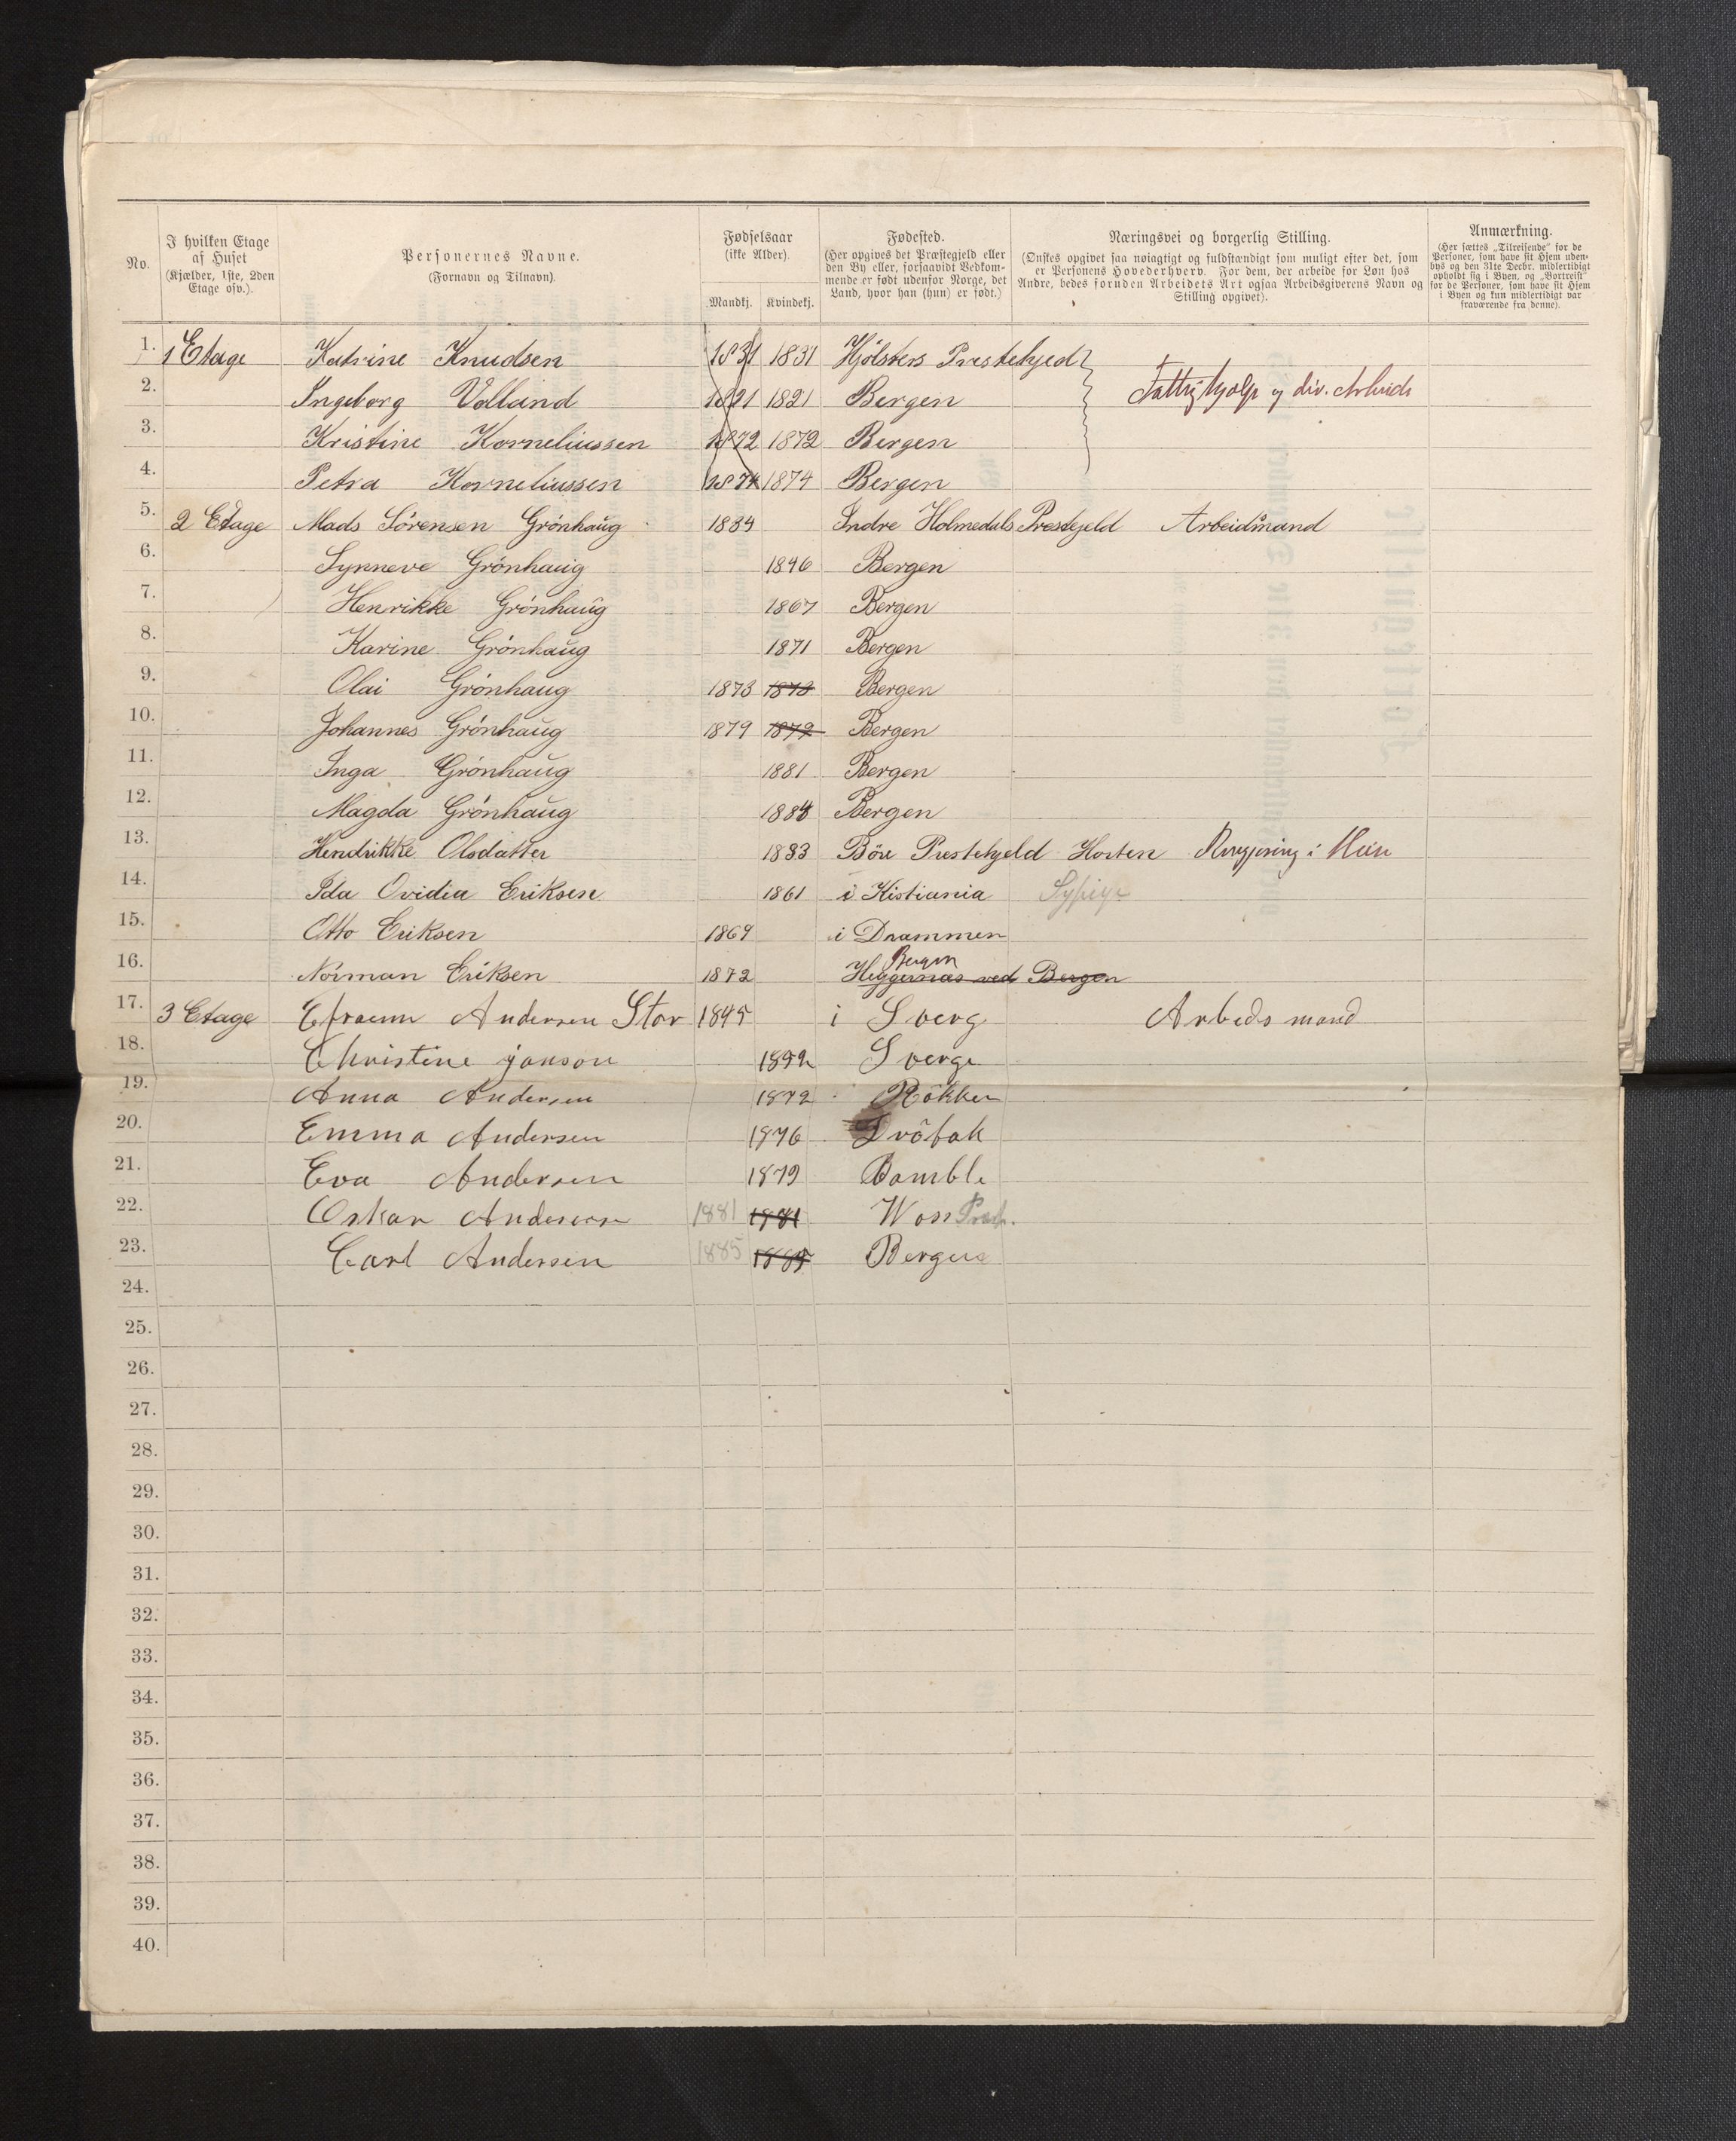 No.
I hvilken Etage
af Huset
(Kjælder, 1ste, 2den
Etage osv.).
Personernes Navne.
(Fornavn og Tilnavn).
Fødselsaar
(ikke Alder).
Mandkj. Kvindekj.
Fødested.
(Her opgives det Præstegjeld eller
den By eller, forsaavidt Vedkom-
mende er født udenfor Norge, det
Land, hvor han (hun) er født.)
Næringsvei og borgerlig Stilling.
(Ønskes opgivet saa nøiagtigt og fuldstændigt som muligt efter det, som
er Personens Hovederhverv. For dem, der arbeide for Løn hos
Andre, bedes foruden Arbeidets Art ogsaa Arbeidsgiverens Navn og
Stilling opgivet).
Anmærkning.
(Her sættes „Tilreisende" for de
Personer, som have sit Hjem uden-
bys og den 31te Decbr. midlertidigt
opholdt sig i Byen, og „Bortreist"
for de Personer, som have sit Hjem
i Byen og kun midlertidigt var
fraværende fra denne).
1. 1 Etage Katrine Knudsen 1831 1831 Hjölsters Prestekjed
2. Ingeborg Volland 1821 1821 Bergen Fattighjælp og div. Arbeide
3. Kristine Korneliussen 1872 1872 Bergen
4. Petra Korneliussen 1874 1874 Bergen
5. 2 Etage Mads Sörensen Grönhaug 1834 Indre Holmedals Prestejeld Arbeidmand
6. Synneve Grönhaug 1846 Bergen
7. Henrikke Grönhaug 1867 Bergen
8. Karine Grönhaug 1871 Bergen
9. Olai Grönhaug 1873 1873 Bergen
10. Johannes Grönhaug 1879 1879 Bergen
11. Inga Grönhaug 1881 Bergen
12. Magda Grönhaug 1884 Bergen
13. Hendrikke Olsdatter 1833 Böre Prestekjeld Horten Rengjøring i
14. Ida Ovidia Eriksen 1861 i Kistiania Sypige
15. Otto Eriksen 1869 i Drammen
Bergen
16. Norman Eriksen 1872 Heggernæs ved Bergen
17. 3 Etage Efraem Andersen Stor 1845 i Sverg Arbeds mand
18. Christine janson 1842 Sverge
19. Anna Andersen 1872 Rökken
20. Emma Andersen 1876 Dröbak
21. Eva Andersen 1879 Bamble
22. Oskar Andersen 1881 1881 Woss Præst.
23. Carl Andersen 1885 1885 Bergen
24.
25.
26.
27.
28.
29.
30.
31.
32.
33.
34.
35.
36.
37.
38.
39.
40.